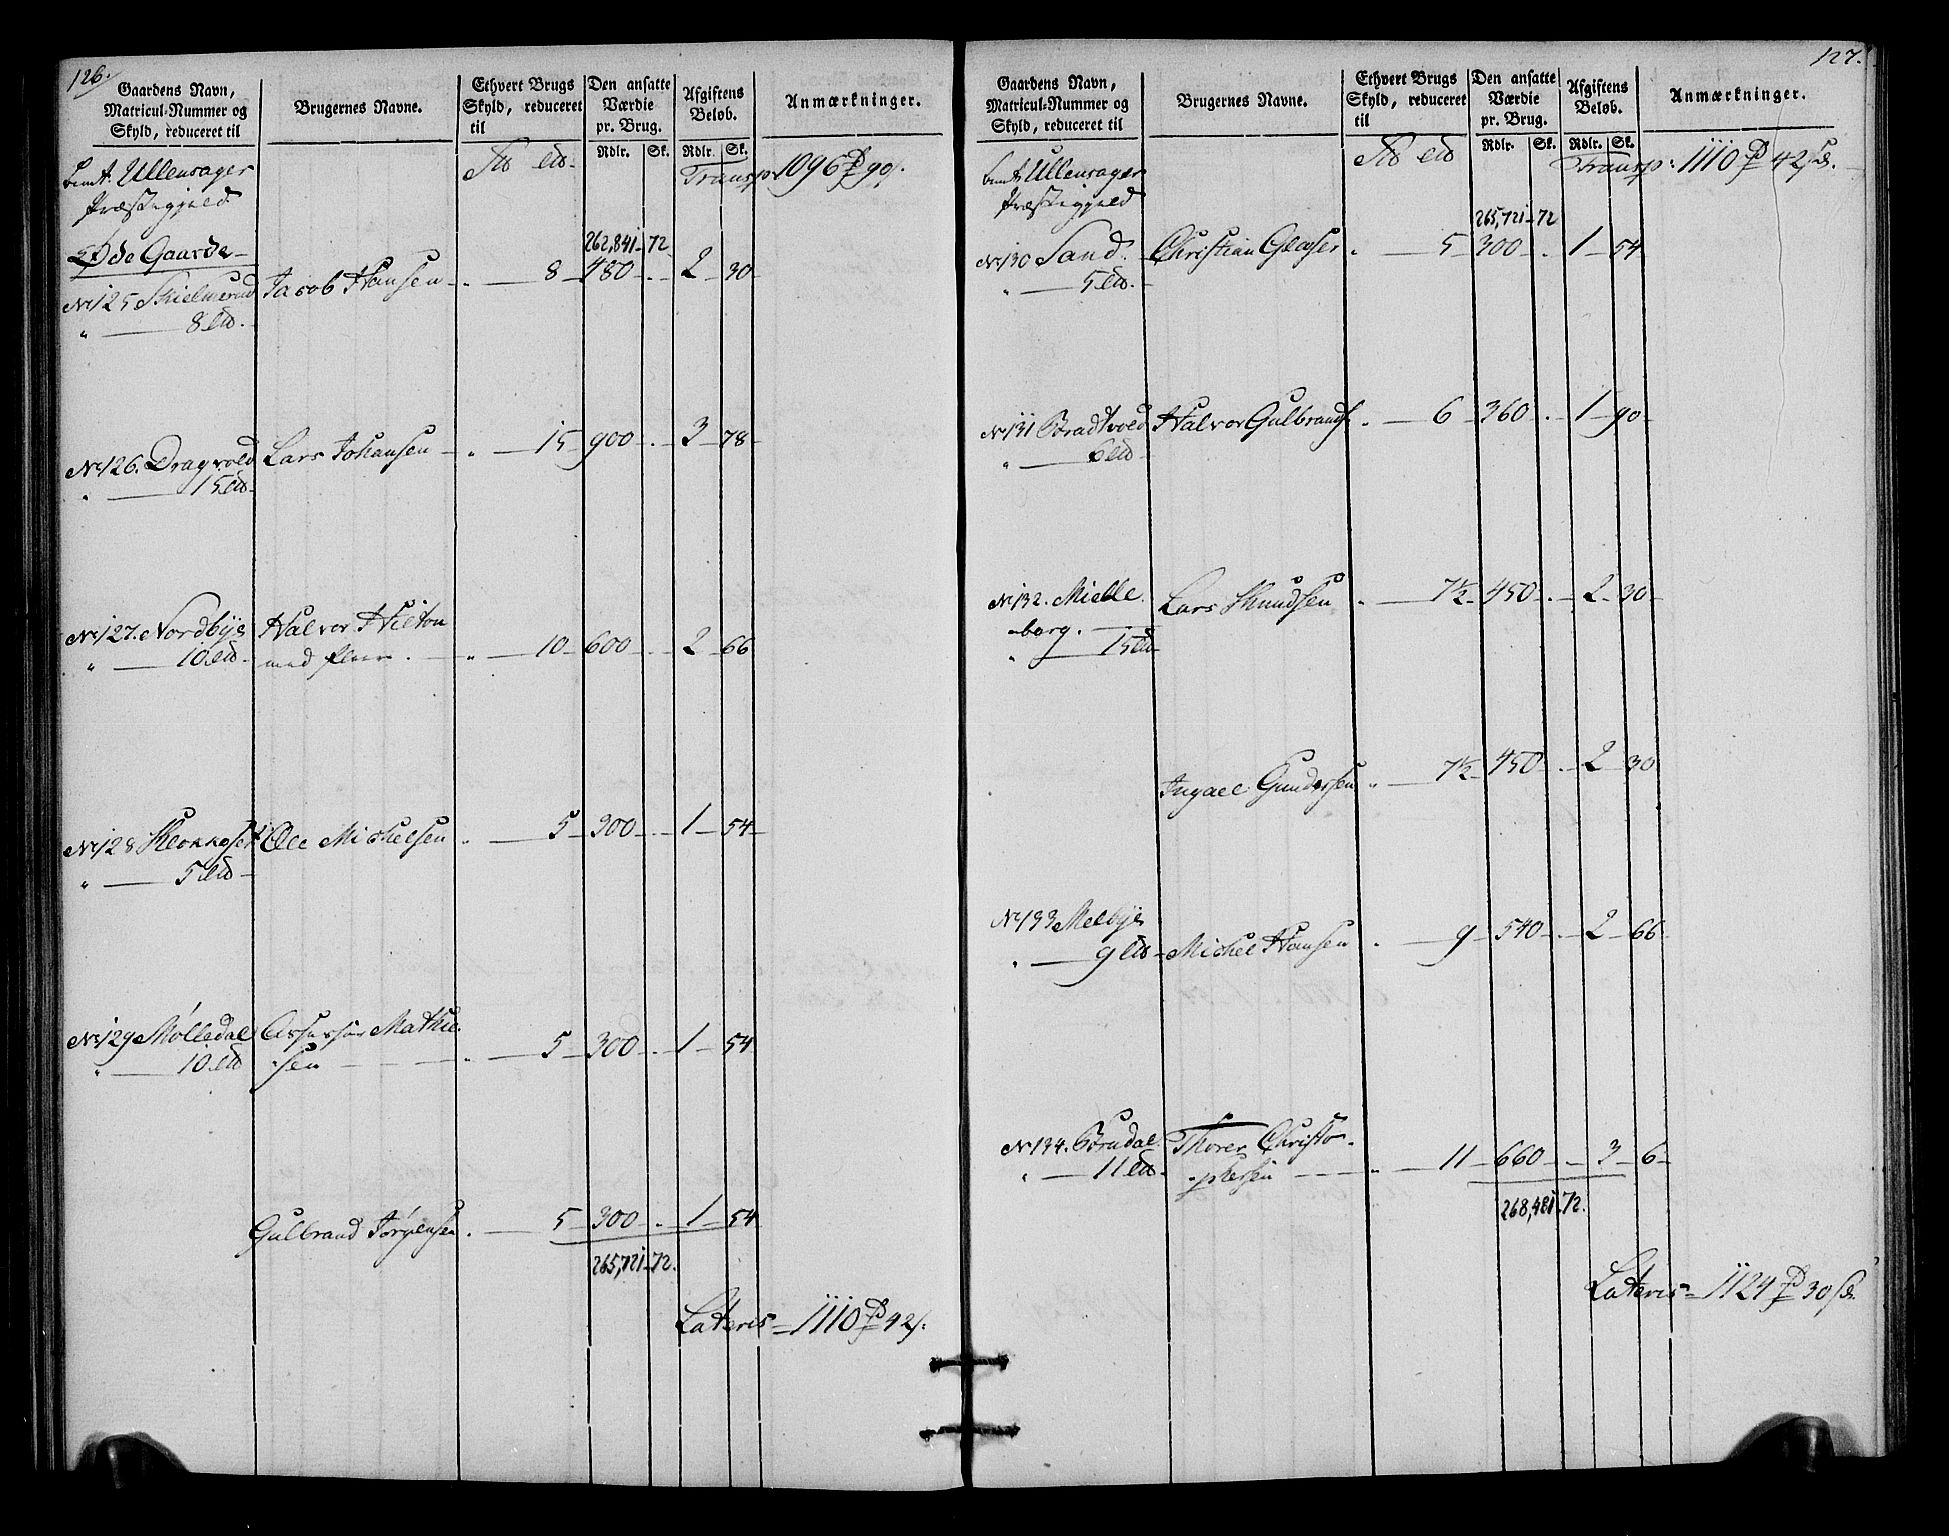 126.
Gaardens Navn, Matricul-Nummer og Skyld, reduceret til
Brugernes Navne.
Ethvert Brugs Skyld, reduceret til
Den ansatte Værdie pr. Brug.
Afgiftens Beløb.
Anmærkninger.
Rdlr. Sk. Rdlr. Sk.
Ullensager
Præstegjeld
Transp: 1096 90
Øde Gaarde
262,841 72
No 125 Skielmerud Jacob Hansen 8 480 2 30
" 8
No 126. Dragvold Lars Johansen " 15 900 3 78
" 15
No 127. Nordbye Halvor Hilton
" 10 med fleer " 10 600 2 66
No 128 Ole Michelsen 5 300 1 54
" 5
No 129 Mølledal Assessor Mathie
" 10 sen " 5 300 1 54
Gulbrand Jørgensen 5 300 1 54
265,721 72.
Lateris 1110 42
127.
Gaardens Navn, Matricul-Nummer og Skyld, reduceret til
Brugernes Navne.
Ethvert Brugs Skyld, reduceret til
Den ansatte Værdie pr. Brug.
Afgiftens Beløb.
Anmærkninger.
Rdlr. Sk. Rdlr. Sk.
Ullensager
Præstegjeld
Transp: 1110 42
265,721 72
No 130 Sand. Christian Glaser 5 300 1 54
" 5
No 131 Halvor Gulbrands 6 360 1 90
" 6
No 132. Mielle
borg. Lars Knudsen 7½ 450 2 30
" 15
Ingael Gundersen " 7½ 450 2 30
No 133 Melbye
" 9 Michel Hansen 9 540 2 66
No 134. Brudal Thorer Christo
" 11 phersen " 11 660 3 6
268,481 72.
Lateris 1124 30